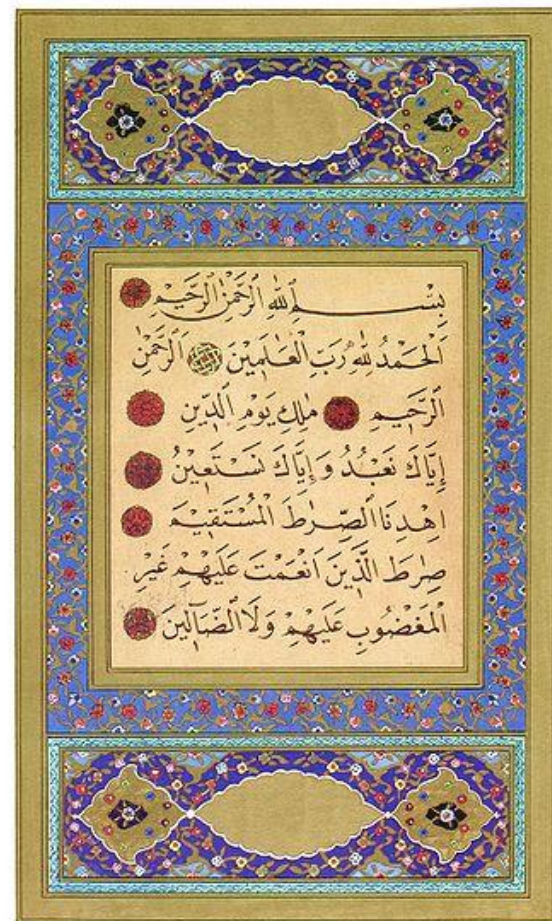 بِسْمِ ٱللهِ ٱلرَّحْمٰنِ ٱلرَّحٖيمِ
اَلْحَمْدُ لِلهِ رَبِّ ٱلْعَالَمٖينَ اَلرَّحْمٰنِ
ٱلرَّحٖيمِ مٰلِكِ يَوْمِ ٱلدّٖينِ
اِيَّاكَ نَعْبُدُ وَ اِيَّاكَ نَسْتَعٖينُ
اِهْدِنَا ٱلصِّرٰطَ ٱلْمُسْتَقٖيمَ
صِرٰطَ ٱلَّذٖينَ اَنْعَمْتَ عَلَيْهِمْ غَيْرِ
ٱلْمَغْضُوبِ عَلَيْهِمْ وَلَا ٱلضَّٓالّٖينَ